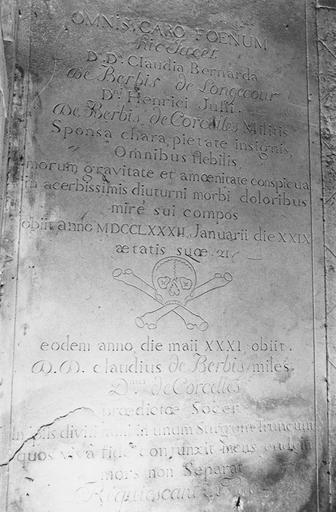 OMNIS CARO FOENUM
hic Jacet
D. Da. Claudia Bernarda
de Berbis de Longecour
Dni Henrici Jusu.
De Berbis de Corcelles Militis
Sponsa chara, pietate insignis,
Omnibus flebilis
morum gravitate et amœnitate conspicua
in acerbissimis diuturni morbi doloribus
mirè sui compos
obiit anno MDCCLXXXII. Januarii die XXIX
ætatis suœ. 21
eodem anno die maii XXXI obiit.
D. D. claudius de Berbis miles
Dnus de Corcelles
prœdictœ Socer
in unum
quos viva fide conjunxit
mors non Separat
Requiescant